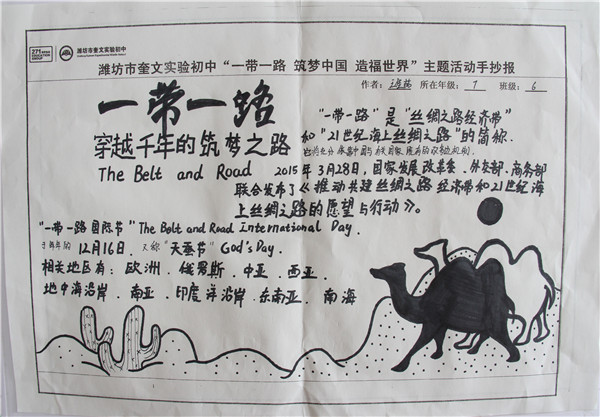 271 EDUCATION GROUP
潍坊市奎文实验初中
潍坊市奎文实验初中“一带一路 筑梦中国 造福世界”主题活动手抄报
作者: 所在年级: 7 班级: 6
一带一路
穿越千年的筑梦之路
The Belt and Road
“一带一路”是“丝绸之路经济带”
和“21世纪海上丝绸之路”的简称.
2015年3月28日,国家发展改革委、外交部、商务部
联合发布了《推动共建丝绸之路经济带和21世纪海
上丝绸之路的愿望与行动》。
“一带一路国际节”The Belt and Road International Day.
于每年的12月16日. 又称“天蚕节”God's Day.
相关地区有:欧洲.俄罗斯.中亚.西亚.
地中海沿岸.南亚.印度洋沿岸.东南亚.南海